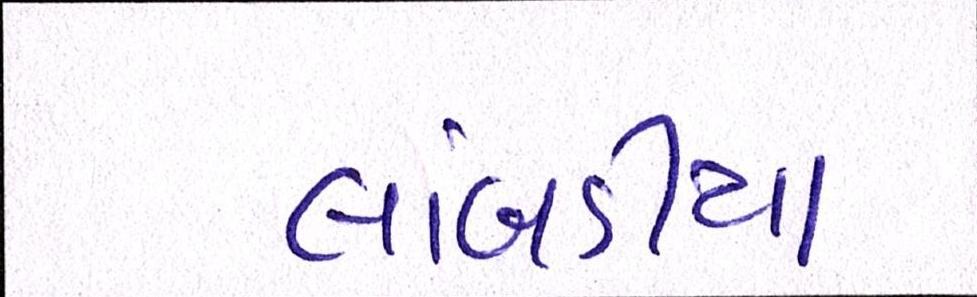 લાંબડીયા